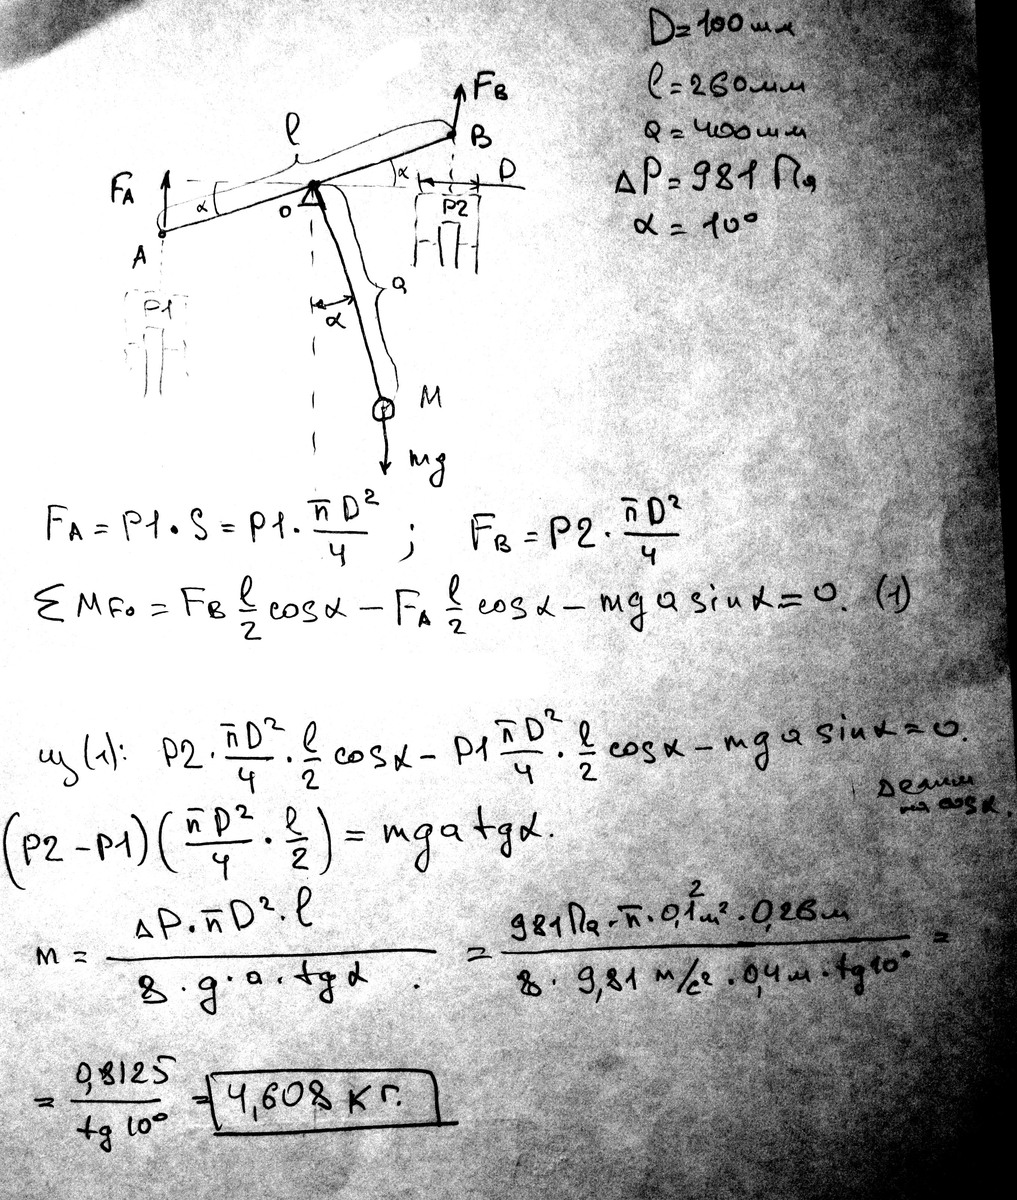 D = 100 мм
l = 260 мм
a = 400 мм
ΔP = 981 Па
α = 10°
F_B
l
B
F_A
α
α
D
O
P2
A
P1
a
α
M
mg
F_A = P1 · S = P1 · πD²/4 ; F_B = P2 · πD²/4
Σ M_Fo = F_B l/2 cosα − F_A l/2 cosα − mg a sinα = 0. (1)
из (1): P2 · πD²/4 · l/2 cosα − P1 πD²/4 · l/2 cosα − mg a sinα = 0.
делим
на cosα.
(P2 − P1)(πD²/4 · l/2) = mg a tgα.
m = ΔP · πD² · l / 8 · g · a · tgα = 981 Па · π · 0,1² м² · 0,26 м / 8 · 9,81 м/с² · 0,4 м · tg 10° =
= 0,8125 / tg 10° = 4,608 кг.